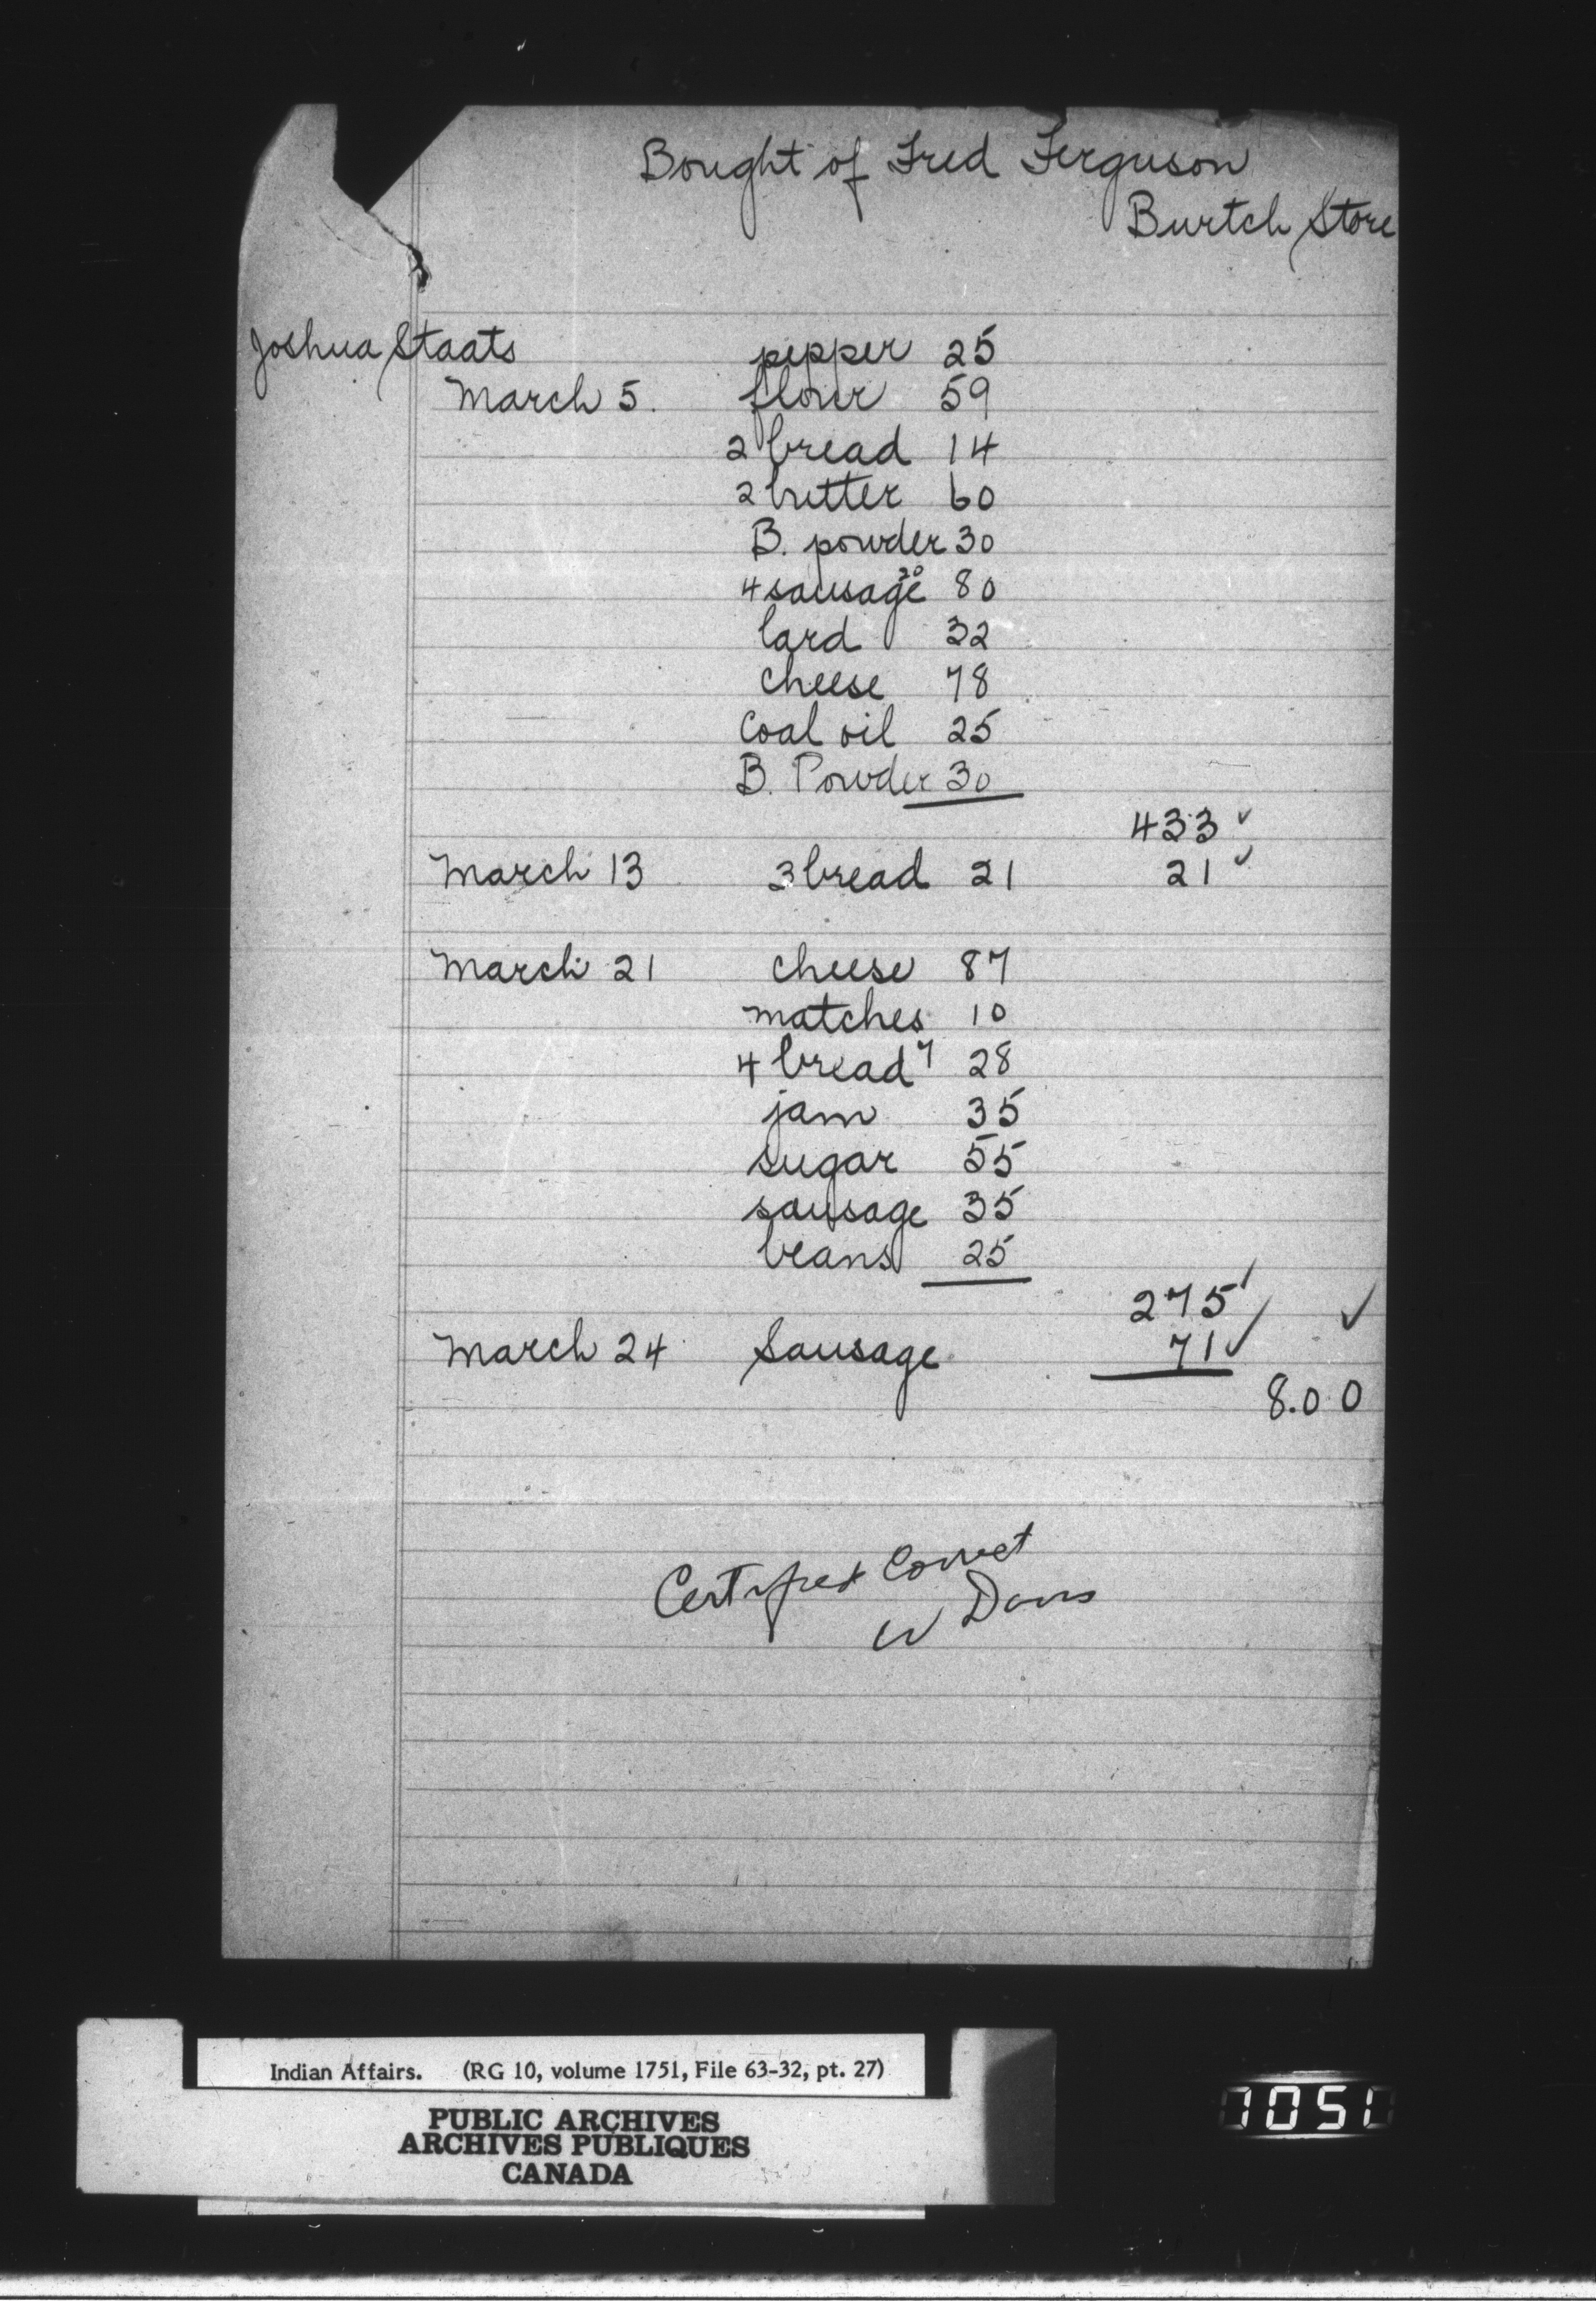 Bought of Fred Ferguson
Burtch Store
Joshua Staats pepper 25
March 5. flour 59
2 bread 14
2 butter 60
B. powder 30
4 sausage 20 80
lard 32
cheese 78
Coal oil 25
B. Powder 30
433 ✓
March 13 3 bread 21 21 ✓
March 21 cheese 87
matches 10
4 bread 7 28
jam 35
sugar 55
sausage 35
beans 25
275 ✓ ✓
March 24 Sausage 71 ✓
8.00
Certified Correct
W Davis
Indian Affairs. (RG 10, volume 1751, File 63-32, pt. 27)
PUBLIC ARCHIVES
ARCHIVES PUBLIQUES
CANADA
1051